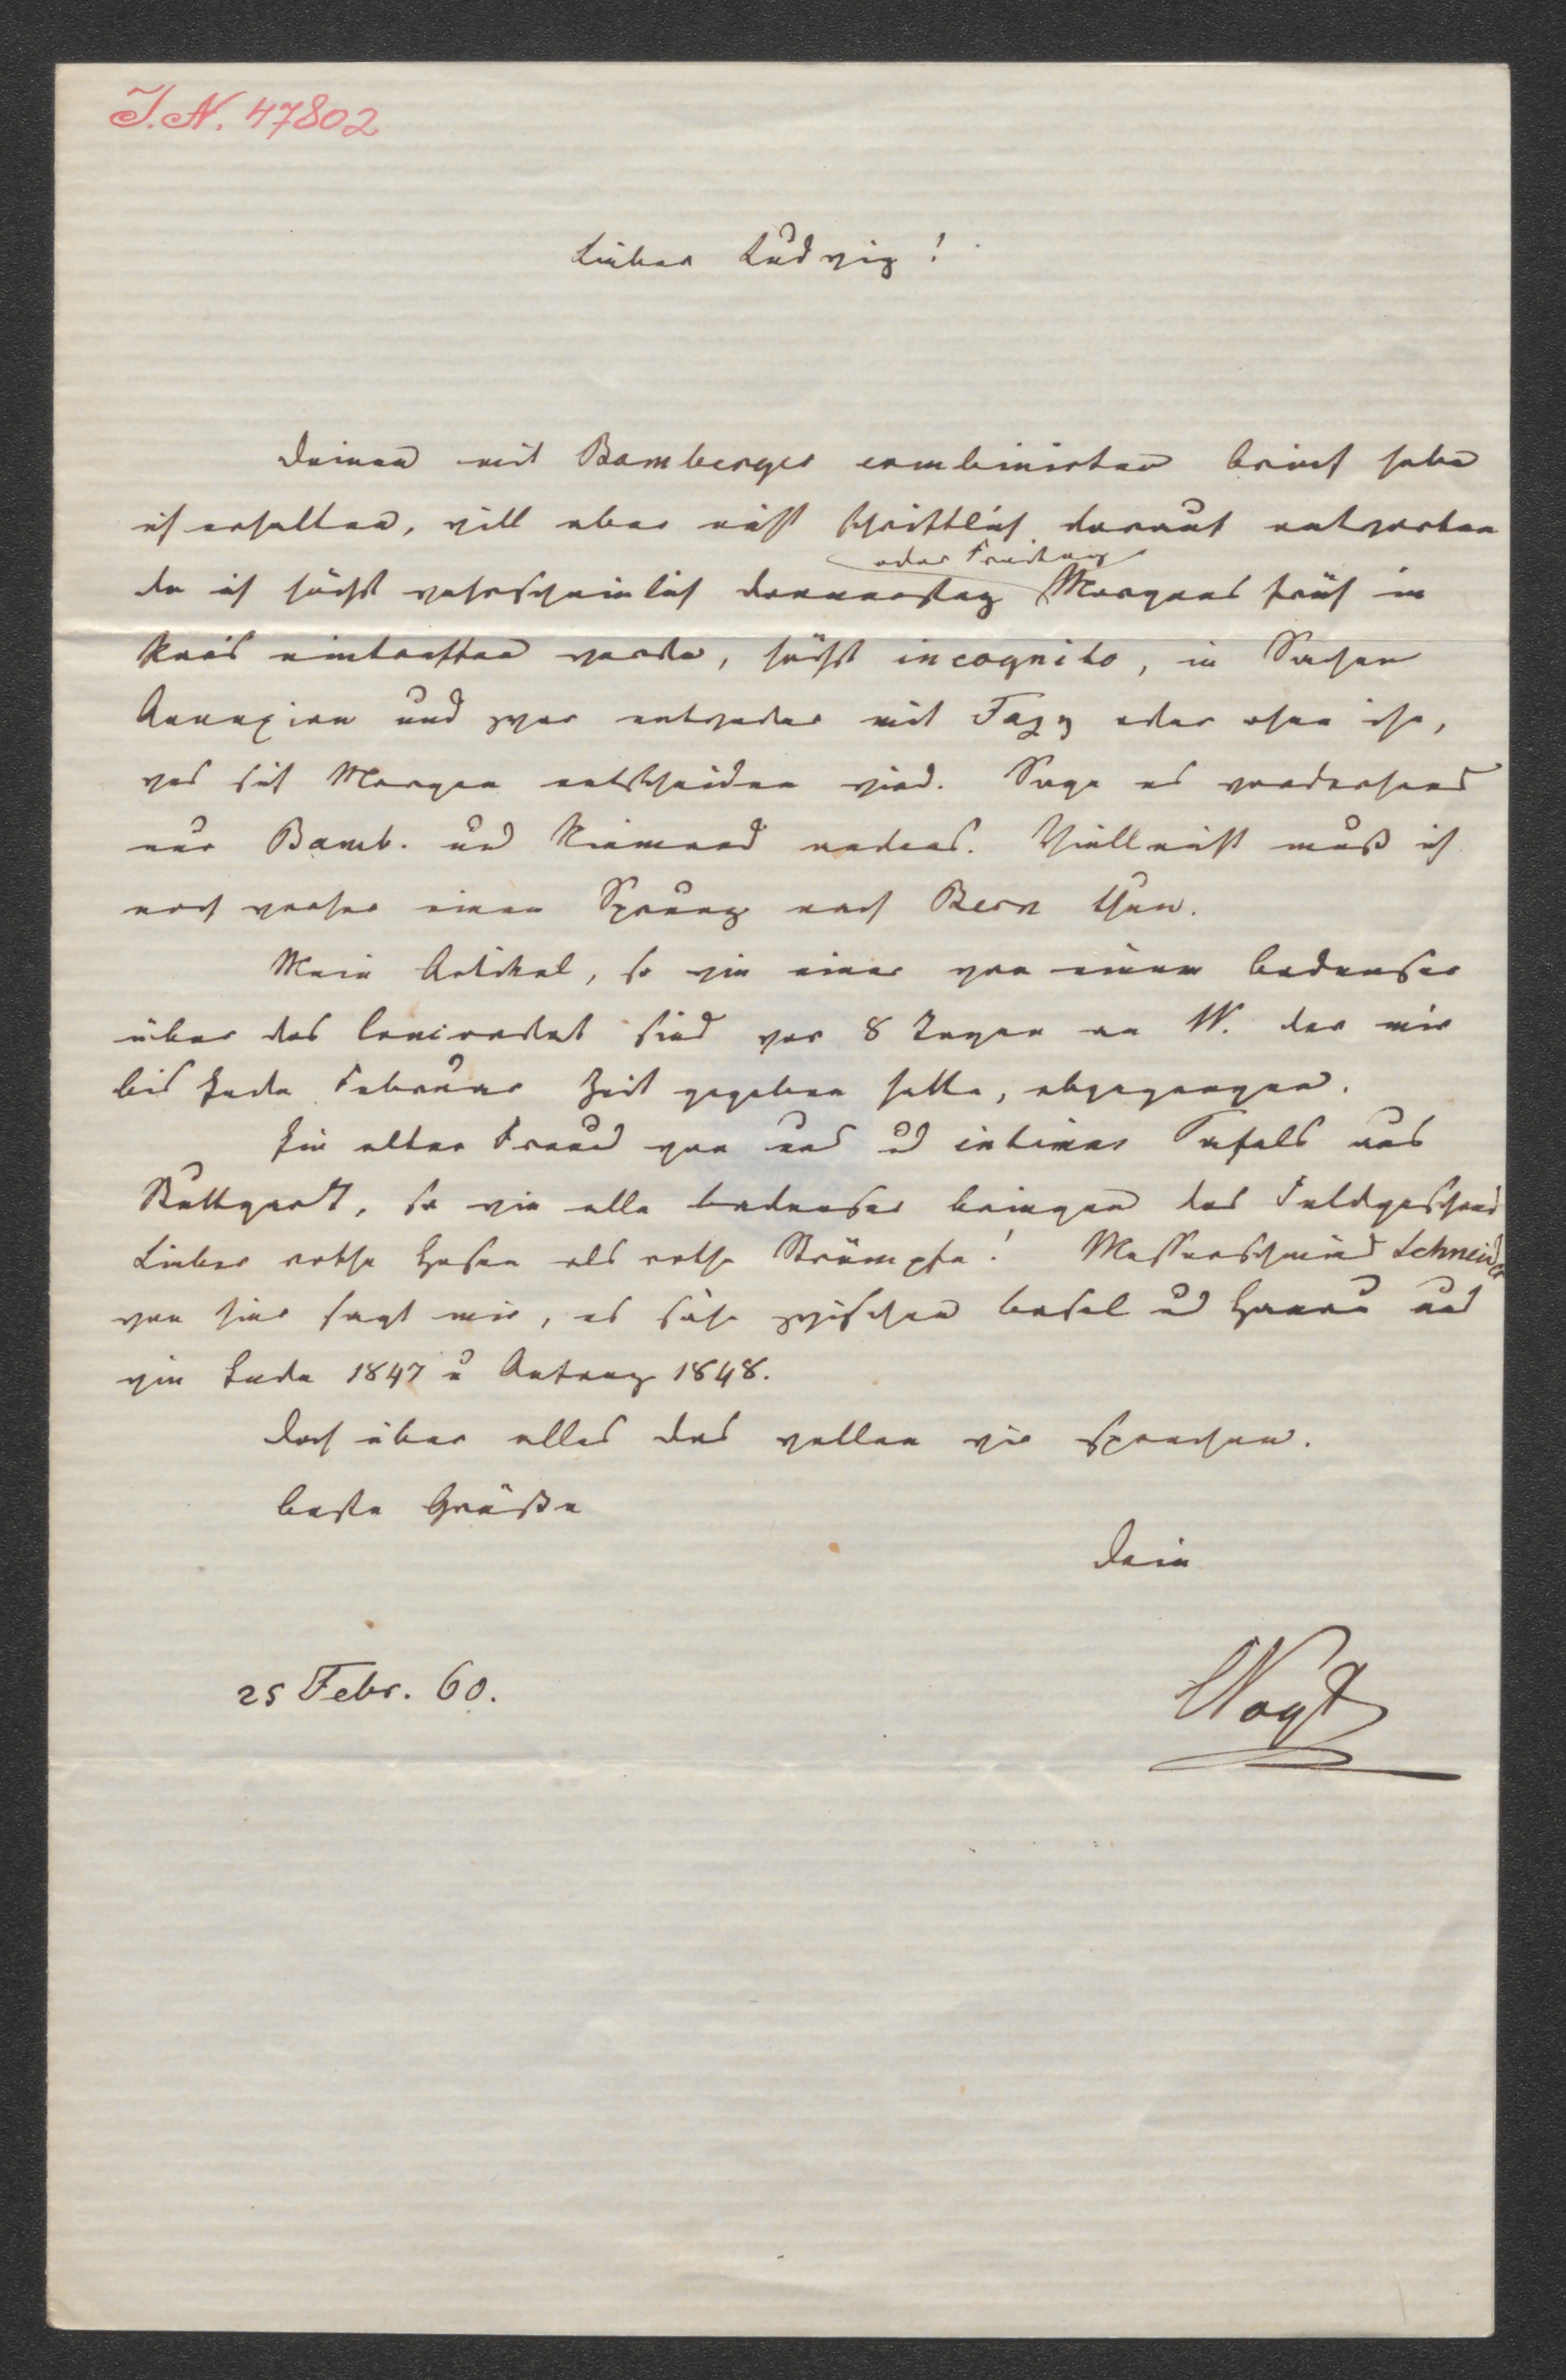 I.N. 47802
Lieber Ludwig!
Deinen mit Bamberger combinirten Brief habe
ich erhalten, will aber nicht schriftlich darauf antworten
oder Freitag
da ich höchst wahrscheinlich Donnerstag Morgens früh in
Paris eintreffen werde, höchst incognito, in Sachen
Annexion und zwar entweder mit Fazy oder ohne ihn,
was sich Morgen entscheiden wird. Sage es vorderhand
nur Bamb. und Niemand anders. Vielleicht muß ich
noch vorher einen Sprung nach Bern thun.
Mein Artikel, so wie einer von einem Badenser
über das Concordat sind vor 8 Tagen an W. der mir
bis Ende Februar Zeit gegeben hatte, abgegangen.
Ein alter Freund von uns ud intimer Tafels aus
Stuttgart, so wie alle Badenser bringen das Feldgeschrei
Lieber rothe Hosen als rothe Strümpfe! Messerschmied Schneider
von hier sagt mir, es sähe zwischen Basel ud Hanau aus
wie Ende 1847 u Anfang 1848.
Doch über alles das wollen wir sprechen.
Beste Grüße
Dein
25 Febr. 60.
CVogt